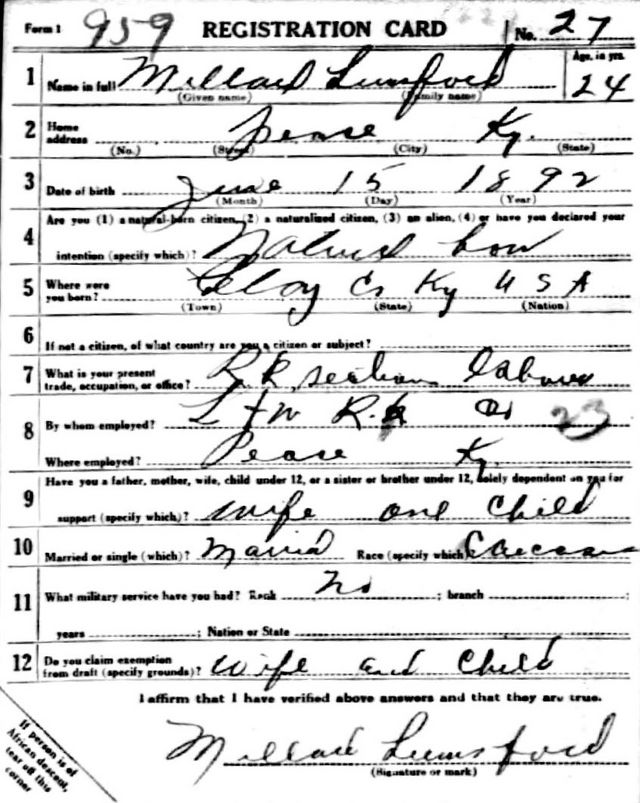 Form 1 959 REGISTRATION CARD No. 27
1 Name in full Millard Lunsford Age, in yrs. 24
(Given name) (Family name)
2 Home address Pease Ky.
(No.) (Street) (City) (State)
3 Date of birth June 15 1892
(Month) (Day) (Year)
4 Are you (1) a natural-born citizen, (2) a naturalized citizen, (3) an alien, (4) or have you declared your
intention (specify which)? Natural born
5 Where were you born? Clay Co Ky U S A
(Town) (State) (Nation)
6 If not a citizen, of what country are you a citizen or subject?
7 What is your present trade, occupation, or office? R.R. section labor
8 By whom employed? L + N R.R. Co 23
Where employed? Pease Ky
9 Have you a father, mother, wife, child under 12, or a sister or brother under 12, solely dependent on you for
support (specify which)? wife one child
10 Married or single (which)? Married Race (specify which)? Caucasian
11 What military service have you had? Rank no ; branch ;
years ; Nation or State
12 Do you claim exemption from draft (specify grounds)? wife and child
I affirm that I have verified above answers and that they are true.
Millard Lunsford
(Signature or mark)
If person is of
African descent,
tear off this
corner